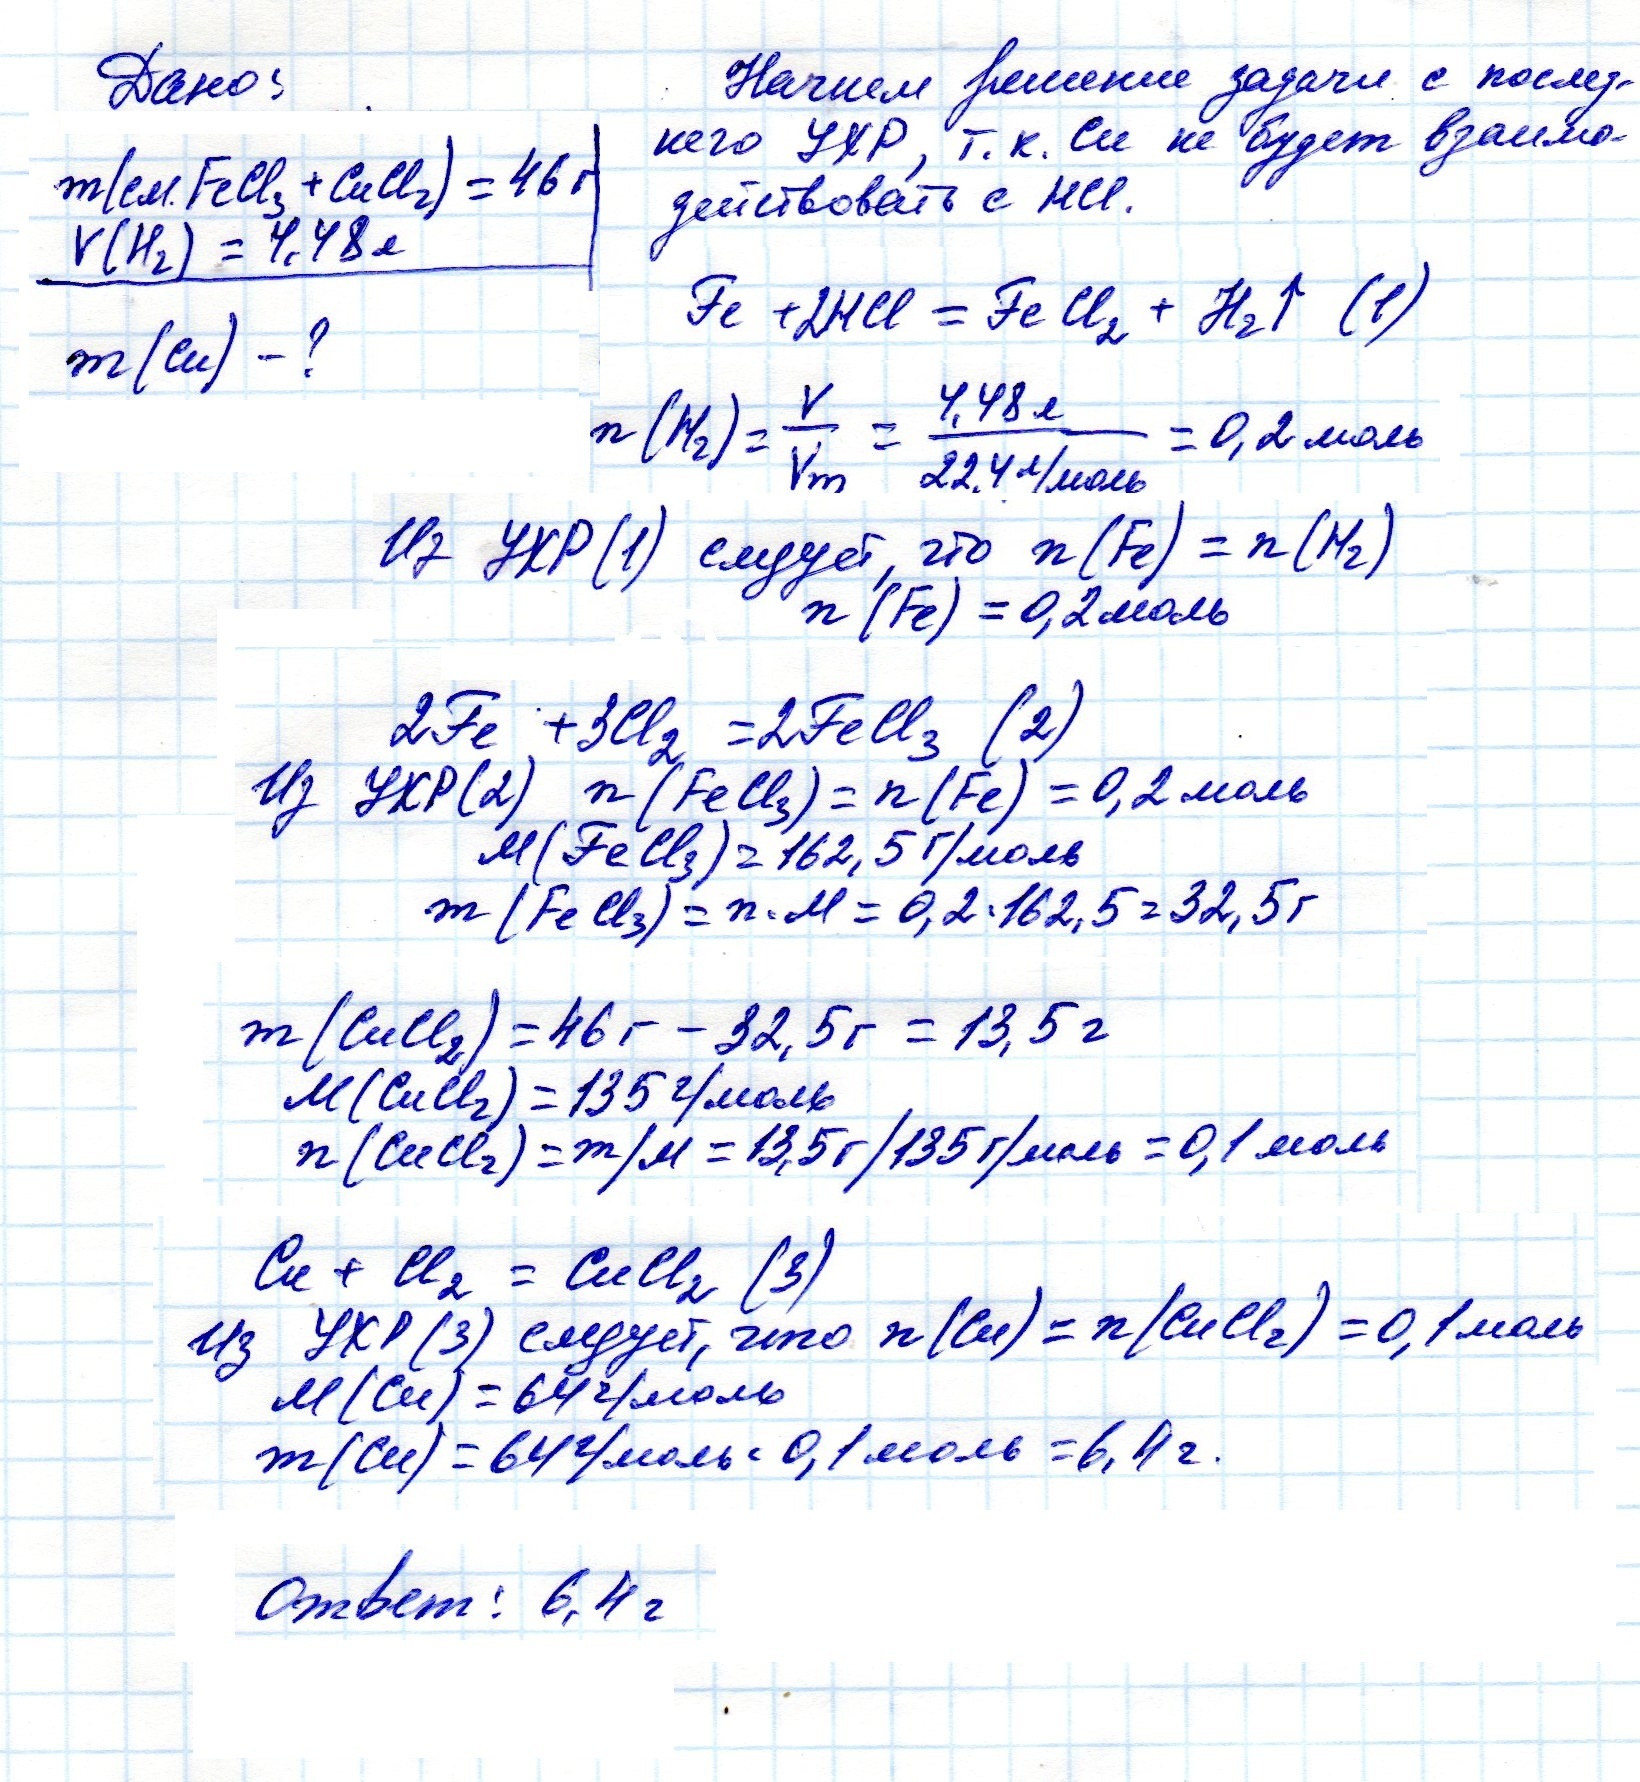 Дано:
m(см. FeCl3 + CuCl2) = 46 г
V(H2) = 4,48 л
m(Cu) - ?
Начнем решение задачи с послед-
него УХР, т.к. Cu не будет взаимо-
действовать с HCl.
Fe + 2HCl = FeCl2 + H2↑ (1)
n(H2) = V/Vm = 4,48 л / 22,4 л/моль = 0,2 моль
Из УХР(1) следует, что n(Fe) = n(H2)
n(Fe) = 0,2 моль
2Fe + 3Cl2 = 2FeCl3 (2)
Из УХР(2) n(FeCl3) = n(Fe) = 0,2 моль
M(FeCl3) = 162,5 г/моль
m(FeCl3) = n·M = 0,2·162,5 = 32,5 г
m(CuCl2) = 46 г - 32,5 г = 13,5 г
M(CuCl2) = 135 г/моль
n(CuCl2) = m/M = 13,5 г/135 г/моль = 0,1 моль
Cu + Cl2 = CuCl2 (3)
Из УХР(3) следует, что n(Cu) = n(CuCl2) = 0,1 моль
M(Cu) = 64 г/моль
m(Cu) = 64 г/моль · 0,1 моль = 6,4 г.
Ответ: 6,4 г